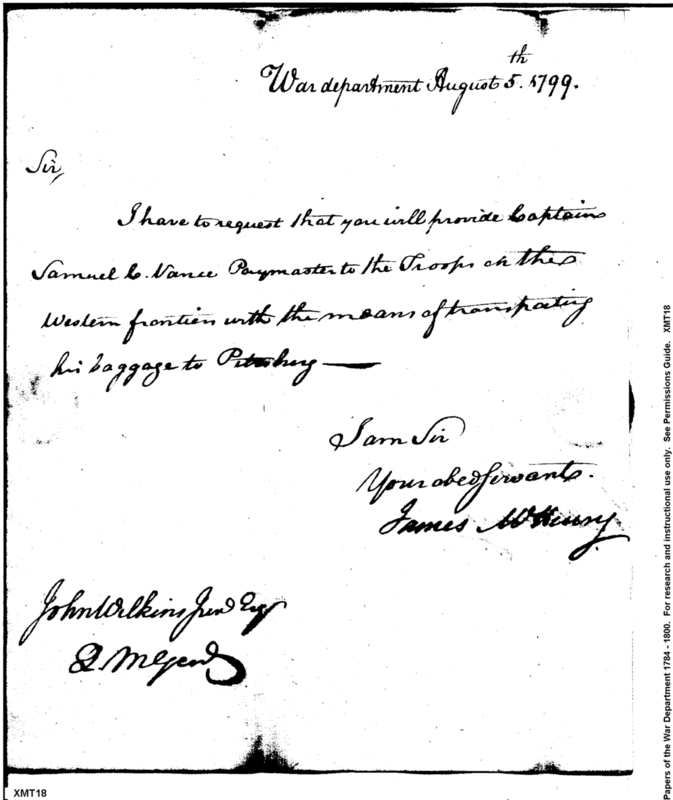 War department August 5.th 1799.
Sir,
I have to request that you will provide Captain
Samuel C. Vance Paymaster to the Troops on the
Western frontiers with the means of transporting
his baggage to Pittsburg —
I am Sir
Your obed Servant.
James McHenry
John Wilkins Junr Esqr
Q. M Genl
Papers of the War Department 1784 - 1800. For research and instructional use only. See Permissions Guide. XMT18
XMT18